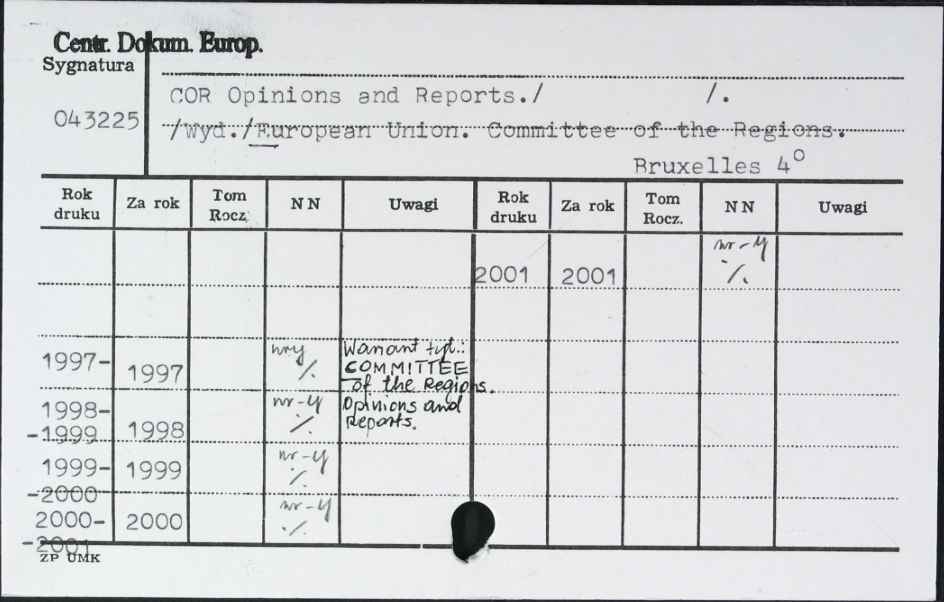 Centr. Dokum. Europ.
Sygnatura
043225
COR Opinions and Reports./ /.
/Wyd./European Union. Committee of the Regions.
Bruxelles 4°
Rok druku Za rok Tom Rocz. NN Uwagi Rok druku Za rok Tom Rocz. NN Uwagi
2001 2001 nr-y ·/.
1997- 1997 nry ·/. Wariant tyt.:
COMMITTEE
of the Regions.
Opinions and
Reports.
1998-
-1999 1998 nr-y ·/.
1999-
-2000 1999 nr-y ·/.
2000-
-2001 2000 nr-y ·/.
ZP UMK